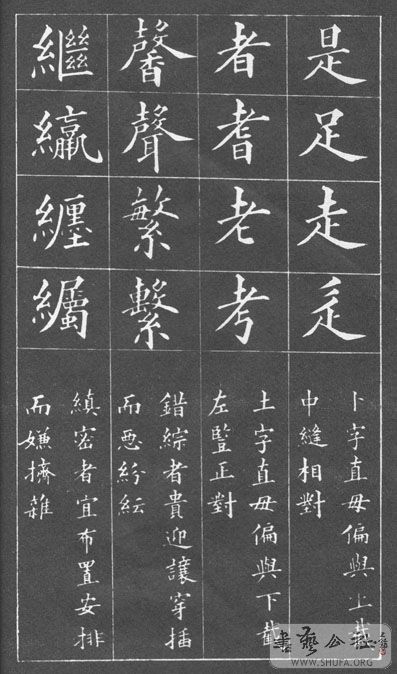 是足走辵
卜字直毋偏與上截
中縫相對
者耆老考
土字直毋偏與下截
左豎正對
馨聲繁繫
錯綜者貴迎讓穿插
而惡紛紜
繼纏
縝密者宜布置安排
而嫌擠雜
書藝公社
WWW.SHUFA.ORG